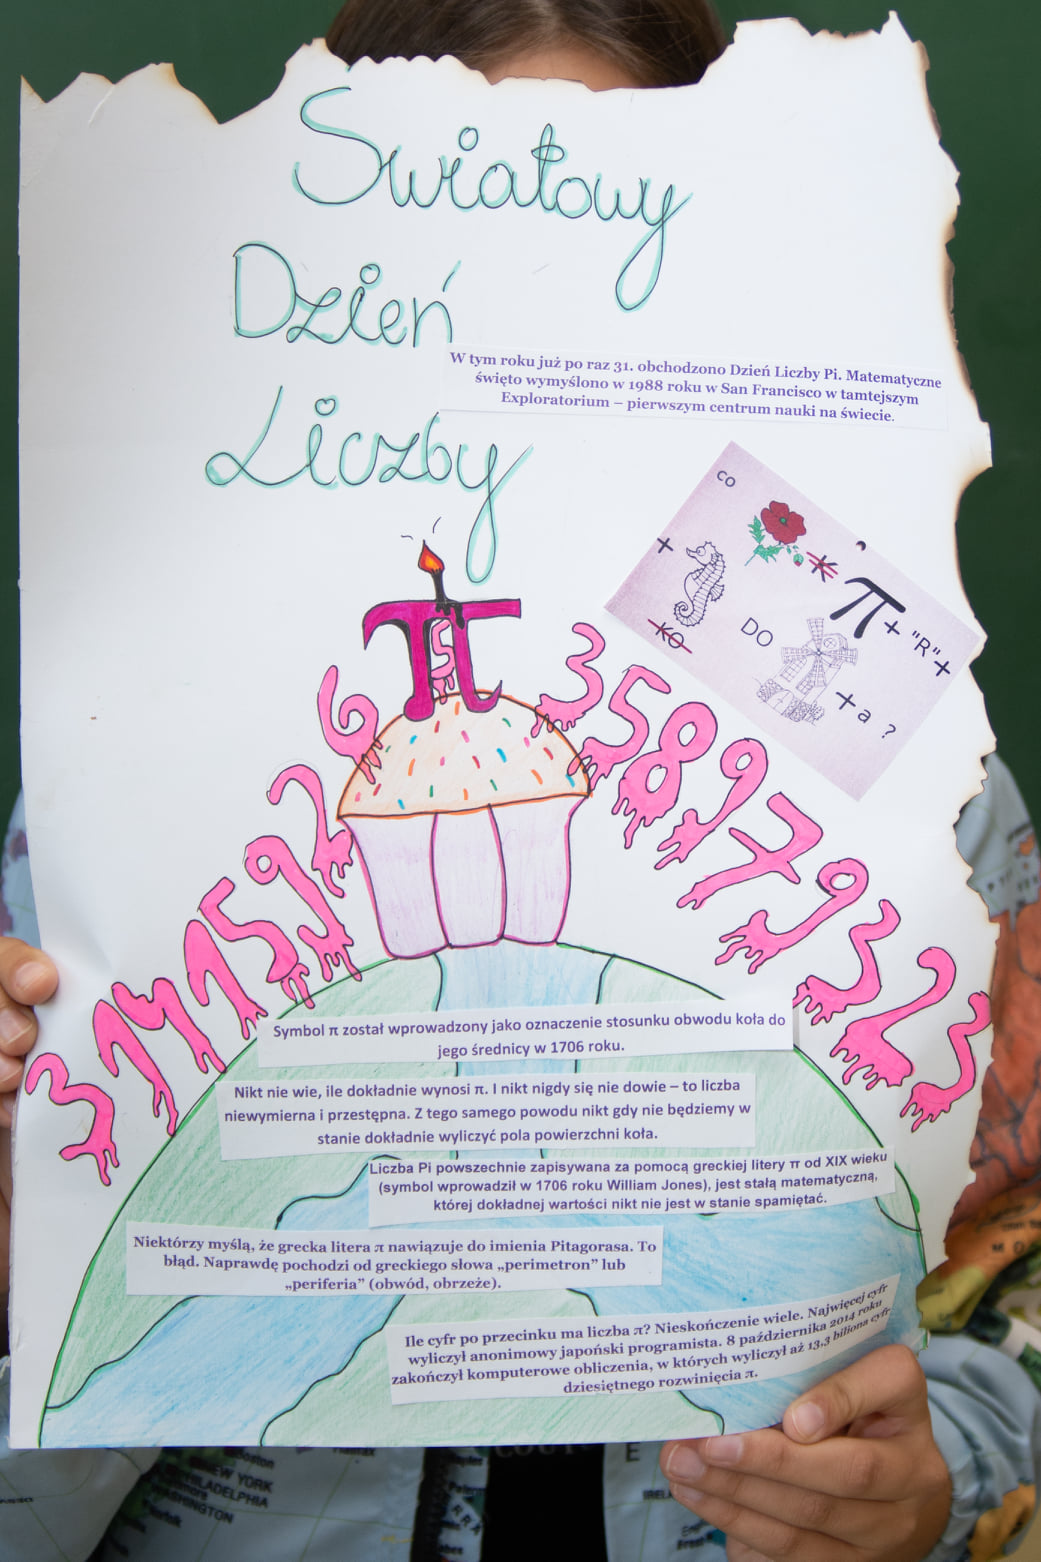 Światowy
Dzień
Liczby
W tym roku już po raz 31. obchodzono Dzień Liczby Pi. Matematyczne
święto wymyślono w 1988 roku w San Francisco w tamtejszym
Exploratorium – pierwszym centrum nauki na świecie.
co
+ K π + "R" +
KO DO + a ?
π
3141592653589793223
Symbol π został wprowadzony jako oznaczenie stosunku obwodu koła do
jego średnicy w 1706 roku.
Nikt nie wie, ile dokładnie wynosi π. I nikt nigdy się nie dowie – to liczba
niewymierna i przestępna. Z tego samego powodu nikt gdy nie będziemy w
stanie dokładnie wyliczyć pola powierzchni koła.
Liczba Pi powszechnie zapisywana za pomocą greckiej litery π od XIX wieku
(symbol wprowadził w 1706 roku William Jones), jest stałą matematyczną,
której dokładnej wartości nikt nie jest w stanie spamiętać.
Niektórzy myślą, że grecka litera π nawiązuje do imienia Pitagorasa. To
błąd. Naprawdę pochodzi od greckiego słowa „perimetron” lub
„periferia” (obwód, obrzeże).
Ile cyfr po przecinku ma liczba π? Nieskończenie wiele. Najwięcej cyfr
wyliczył anonimowy japoński programista. 8 października 2014 roku
zakończył komputerowe obliczenia, w których wyliczył aż 13,3 biliona cyfr
dziesiętnego rozwinięcia π.
Boston
NEW YORK
PHILADELPHIA
WASHINGTON
Norfolk